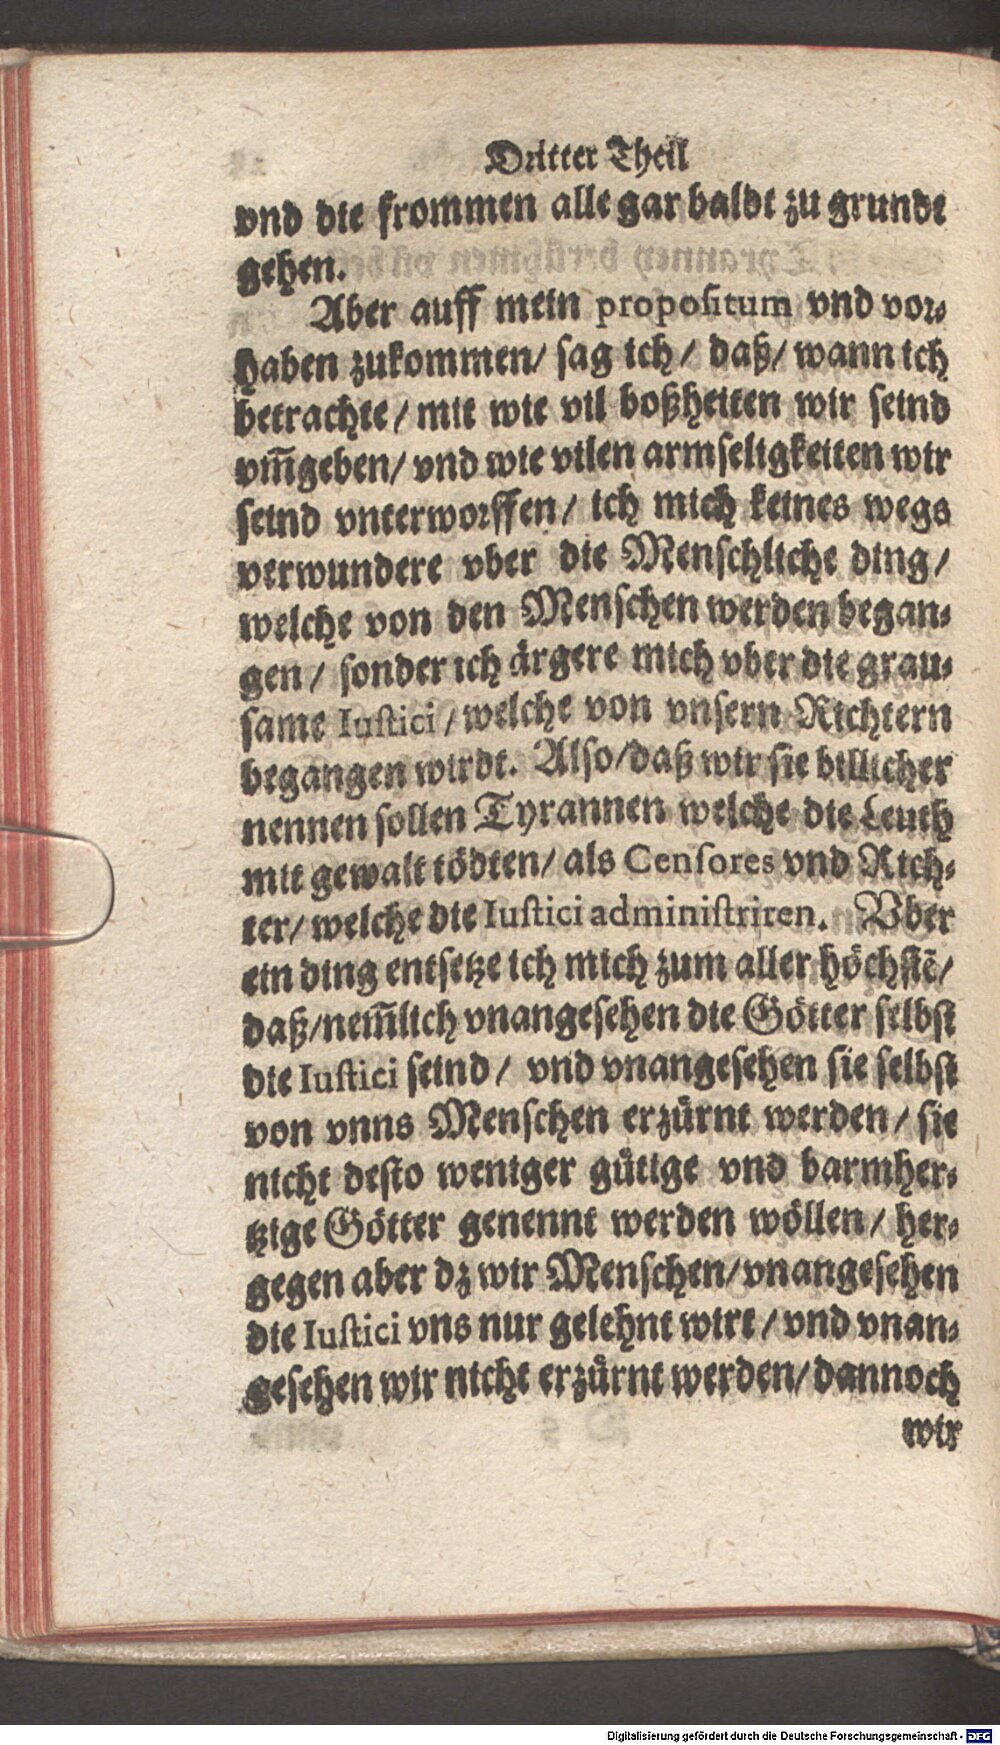 Dritter Theil
vnd die frommen alle gar baldt zu grunde
gehen.
Aber auff mein propoſitum vnd vor⸗
haben zukommen/ ſag ich/ daß/ wann ich
betrachte/ mit wie vil boßheiten wir ſeind
vm̃geben/ vnd wie vilen armſeligkeiten wir
ſeind vnterworffen/ ich mich keines wegs
verwundere vber die Menſchliche ding/
welche von den Menſchen werden began⸗
gen/ ſonder ich ärgere mich vber die grau⸗
ſame Iuſtici/ welche von vnſern Richtern
begangen wirdt. Alſo/ daß wir ſie billicher
nennen ſollen Tyrannen welche die Leuth
mit gewalt tödten/ als Cenſores vnd Rich⸗
ter/ welche die Iuſtici adminiſtriren. Vber
ein ding entſetze ich mich zum aller höchſtē/
daß/ nem̃lich vnangeſehen die Götter ſelbſt
die Iuſtici ſeind/ vnd vnangeſehen ſie ſelbſt
von vnns Menſchen erzürnt werden/ ſie
nicht deſto weniger gütige vnd barmher⸗
tzige Götter genennt werden wöllen/ her⸗
gegen aber dz wir Menſchen/ vnangeſehen
die Iuſtici vns nur gelehnt wirt/ vnd vnan⸗
geſehen wir nicht erzürnt werden/ dannoch
wir
Digitalisierung gefördert durch die Deutsche Forschungsgemeinschaft - DFG